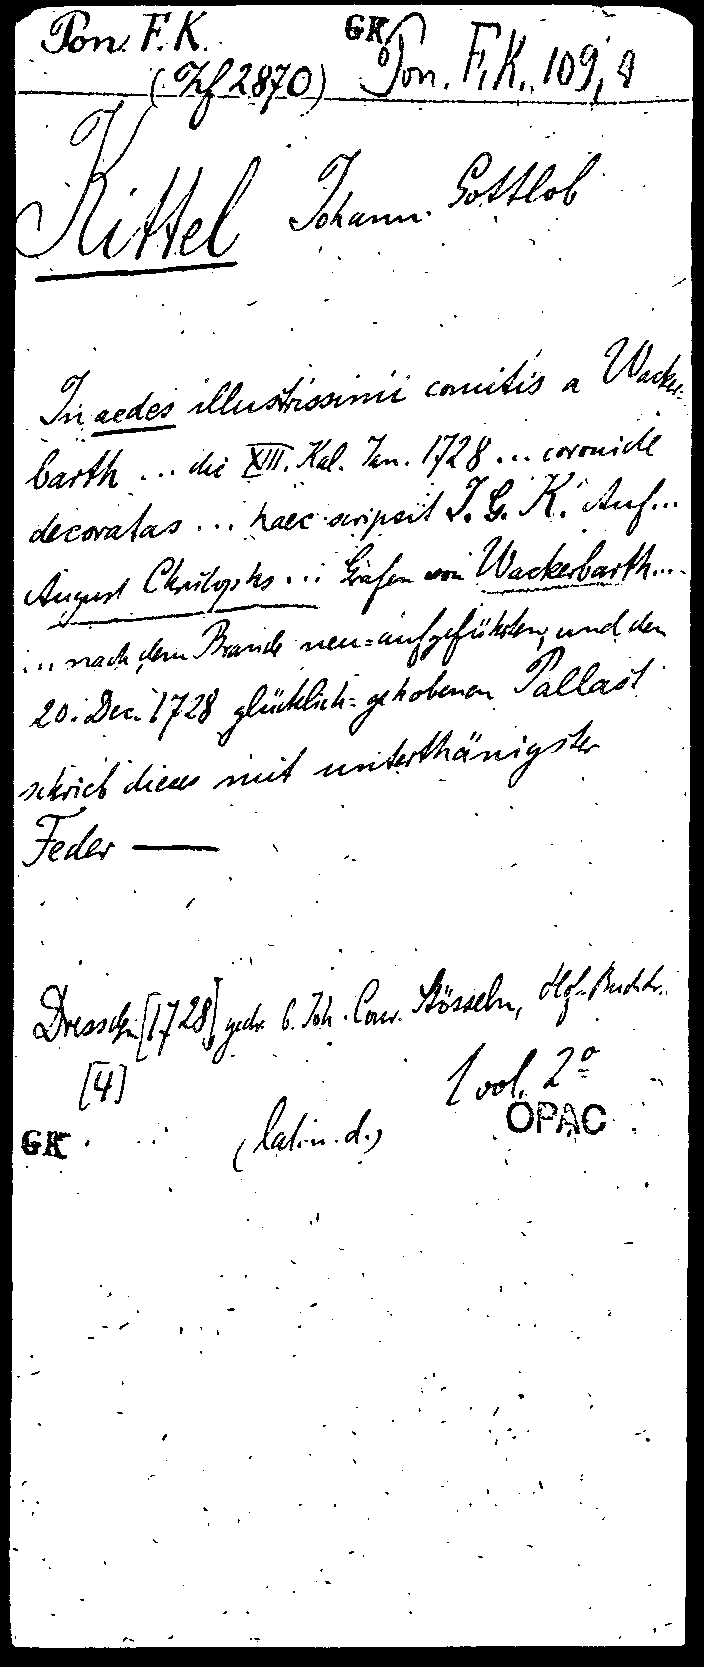 Pon. F.K. GK
(Zf 2870) Pon. F.K. 109, 8
Kittel Johann. Gottlob
In aedes illustrissimi comitis a Wacker-
barth ... die XIII. Kal. Jan. 1728 ... coronide
decoratas ... haec scripsit J. G. K. Auf ...
August Christophs ... Grafen von Wackerbarth ...
... nach dem Brande neu=aufgeführten, und den
20. Dec. 1728 glücklich=gehobenen Pallast
schrieb dieses mit unterthänigster
Feder —
Dresden [1728] gedr. b. Joh. Conr. Stösseln, Hof-Buchdr.
[4] 1 vol. 2°
OPAC
GK (latin. d.)